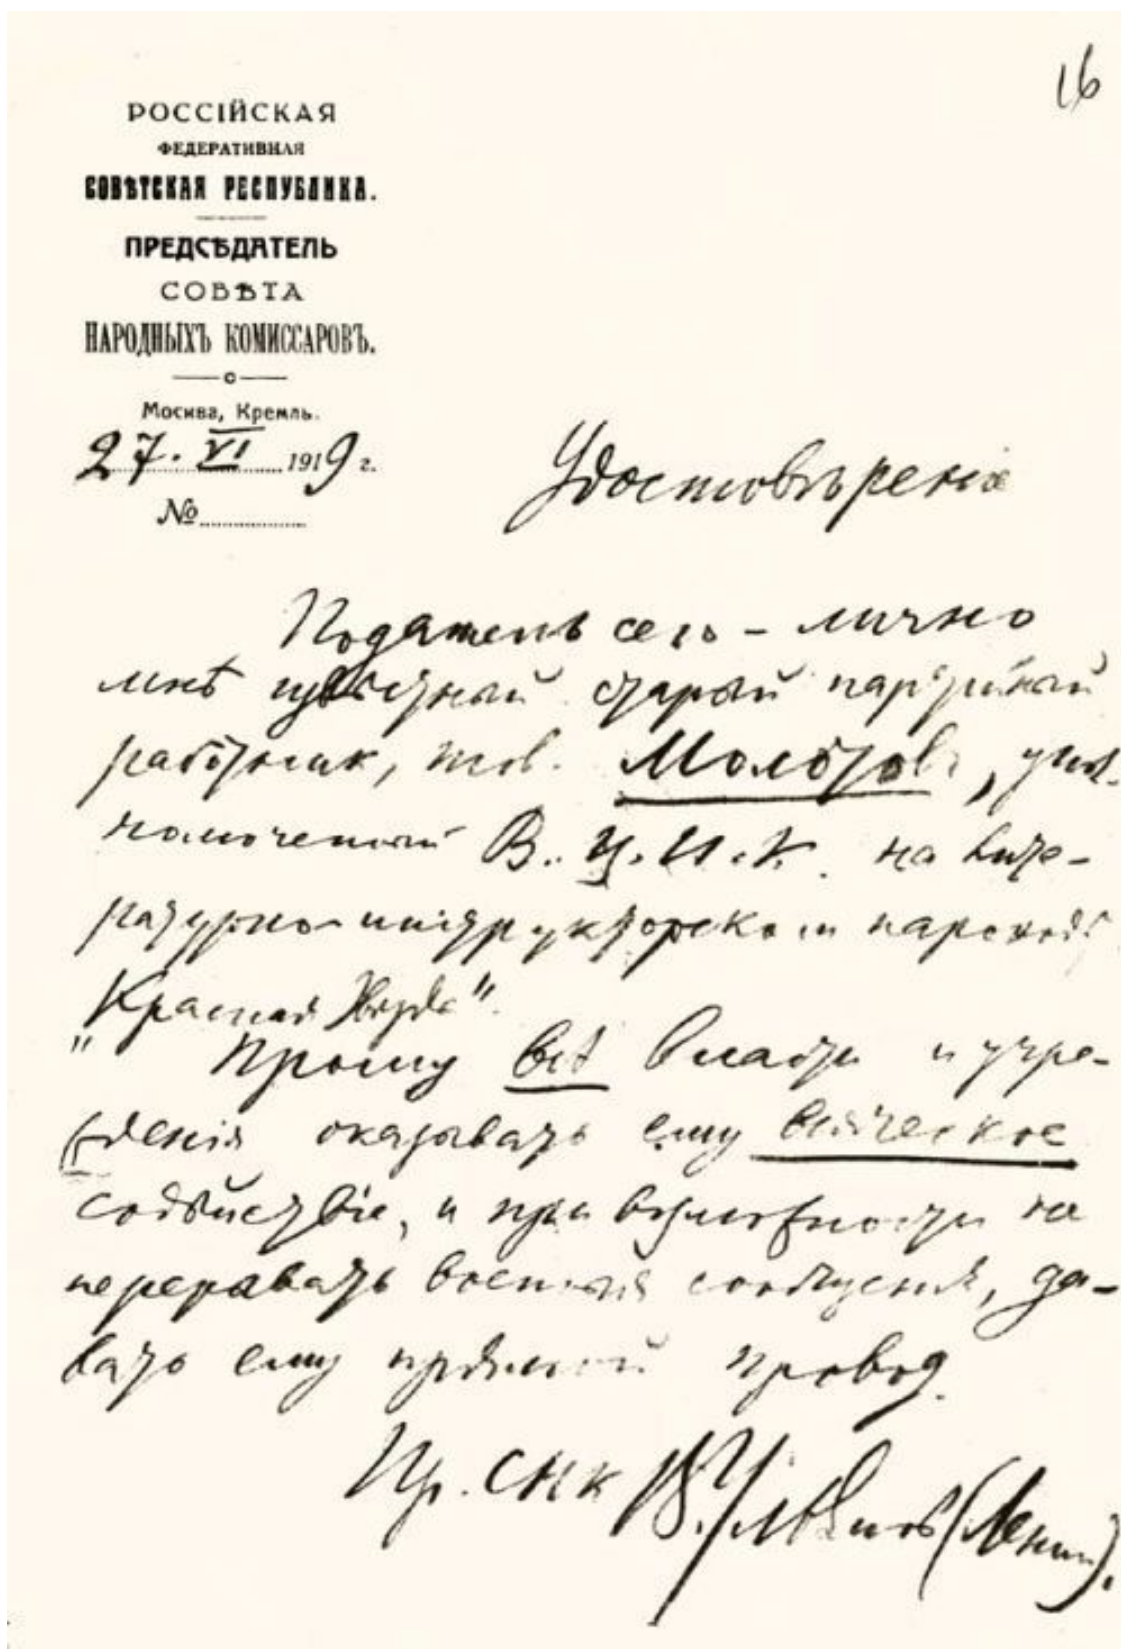 16
РОССІЙСКАЯ
ФЕДЕРАТИВНАЯ
СОВѢТСКАЯ РЕСПУБЛИКА.
ПРЕДСѢДАТЕЛЬ
СОВѢТА
НАРОДНЫХЪ КОМИССАРОВЪ.
Москва, Кремль.
27. VI 1919 г.
№
Удостовѣренiе
Податель сего – лично
мнѣ известный старый партийный
работник, тов. Молотов, упол-
номоченный В.Ц.И.К. на лите-
ратурно-инструкторском пароходѣ
"Красная Звезда".
Прошу всѣ власти и учре-
ждения оказывать ему всяческое
содѣйствiе, и при возможности не
прерывать военныя сообщения, да-
вать ему прямой провод.
Пр. СНК В. Ульянов (Ленин).